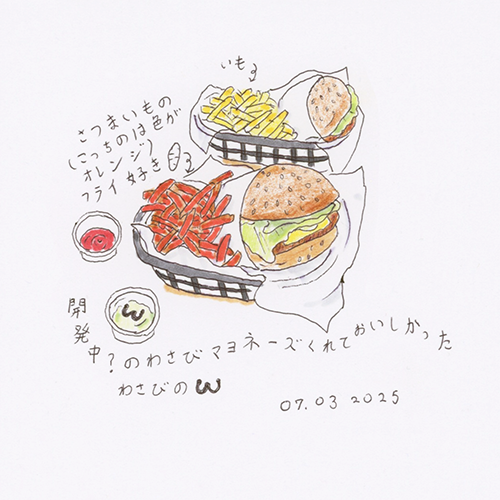 いも
さつまいもの
(こっちのは色が
オレンジ)
フライ好き
開発中?のわさびマヨネーズくれておいしかった
わさびのW
07.03 2025